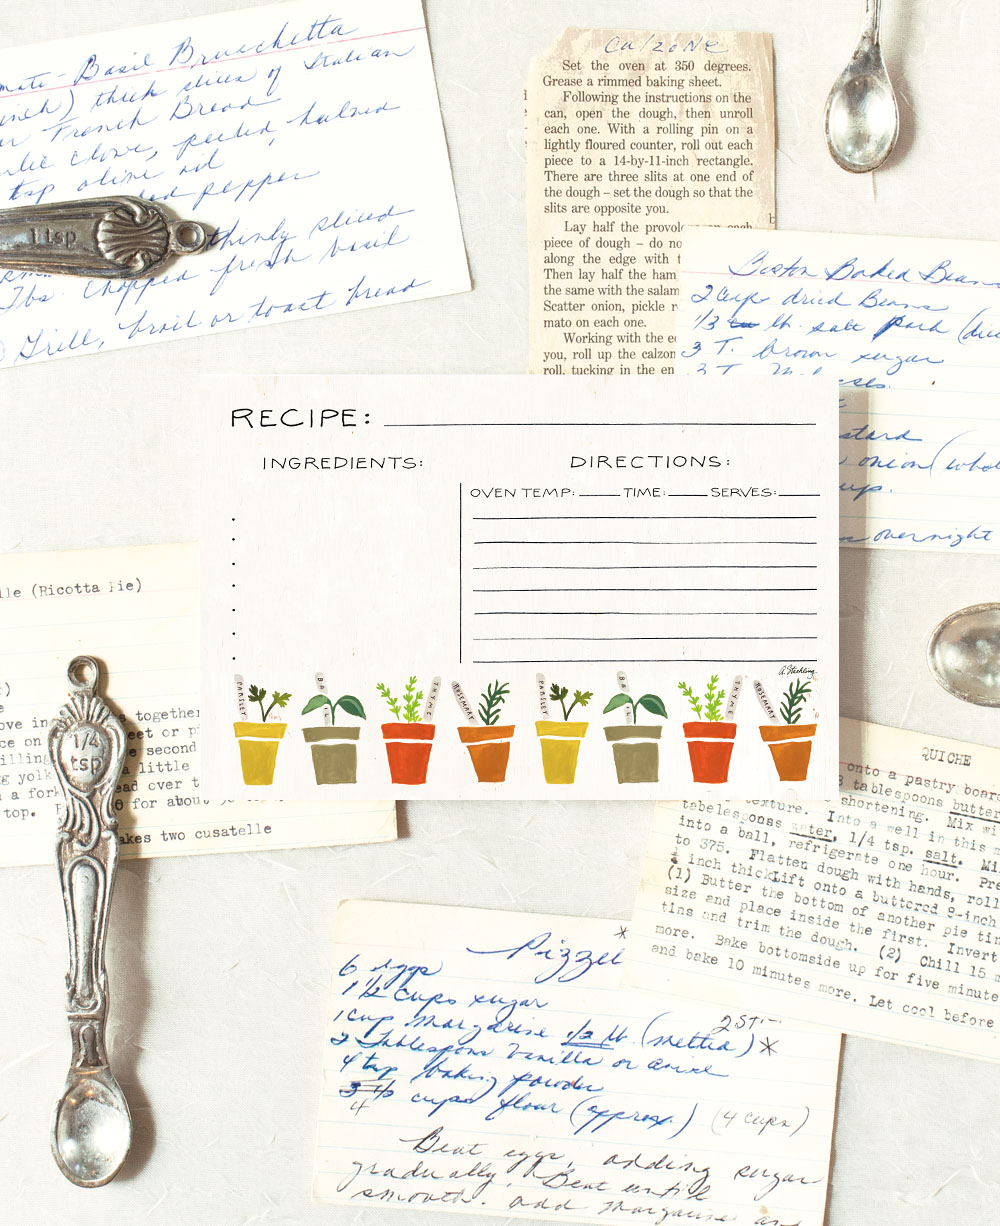 mato-Basil Bruschetta
inch) thick slices of Italian
or French Bread
clove, peeled, halved
tsp olive oil
pepper
1 tsp
thinly sliced
Tbs. chopped fresh basil
Grill, broil or toast bread
Calzone
Set the oven at 350 degrees.
Grease a rimmed baking sheet.
Following the instructions on the
can, open the dough, then unroll
each one. With a rolling pin on a
lightly floured counter, roll out each
piece to a 14-by-11-inch rectangle.
There are three slits at one end of
the dough – set the dough so that the
slits are opposite you.
Lay half the provolone on each
piece of dough – do no
along the edge with t
Then lay half the ham
the same with the salam
Scatter onion, pickle r
mato on each one.
Working with the ed
you, roll up the calzon
roll, tucking in the en
Boston Baked Beans
2 cup dried Beans
1/3 lb. salt pork (dic
3 T. brown sugar
3 T. M sses
stard
onion (whol
up.
overnight
RECIPE:
INGREDIENTS:
DIRECTIONS:
OVEN TEMP: TIME: SERVES:
A. Staehling
PARSLEY
BA IL
THYME
ROSEMARY
PARSLEY
BA IL
THYME
ROSEMARY
lle (Ricotta Pie)
ove in together
ce on eet or p
illing e second
ng yolk a little
n a fork ead over t
top. for about
akes two cusatelle
1/4
tsp
QUICHE
onto a pastry board
3 tablespoons butter
texture. shortening. Mix wi
tabelesponss Into a well in this m
into a ball, water, 1/4 tsp. salt. Mi
to 375. refrigerate one hour. Pre
Flatten dough with hands, roll
inch thickLift onto a buttered 9-inch
(1) Butter the bottom of another pie tin
size and place inside the first. Invert
tins and trim the dough. (2) Chill 15 m
more. Bake bottomside up for five minute
and bake 10 minutes more. Let cool before
* Pizzel
6 eggs
1 1/2 cups sugar
1 cup margarine 1/2 lb. (melted) * 2 ST.
2 Tablespons Vanilla or anise
4 tsp baking powder
3 1/2 cups flour (approx.) (4 cups)
4
Beat eggs, adding sugar
gradually. Beat until
smooth. add margarine an